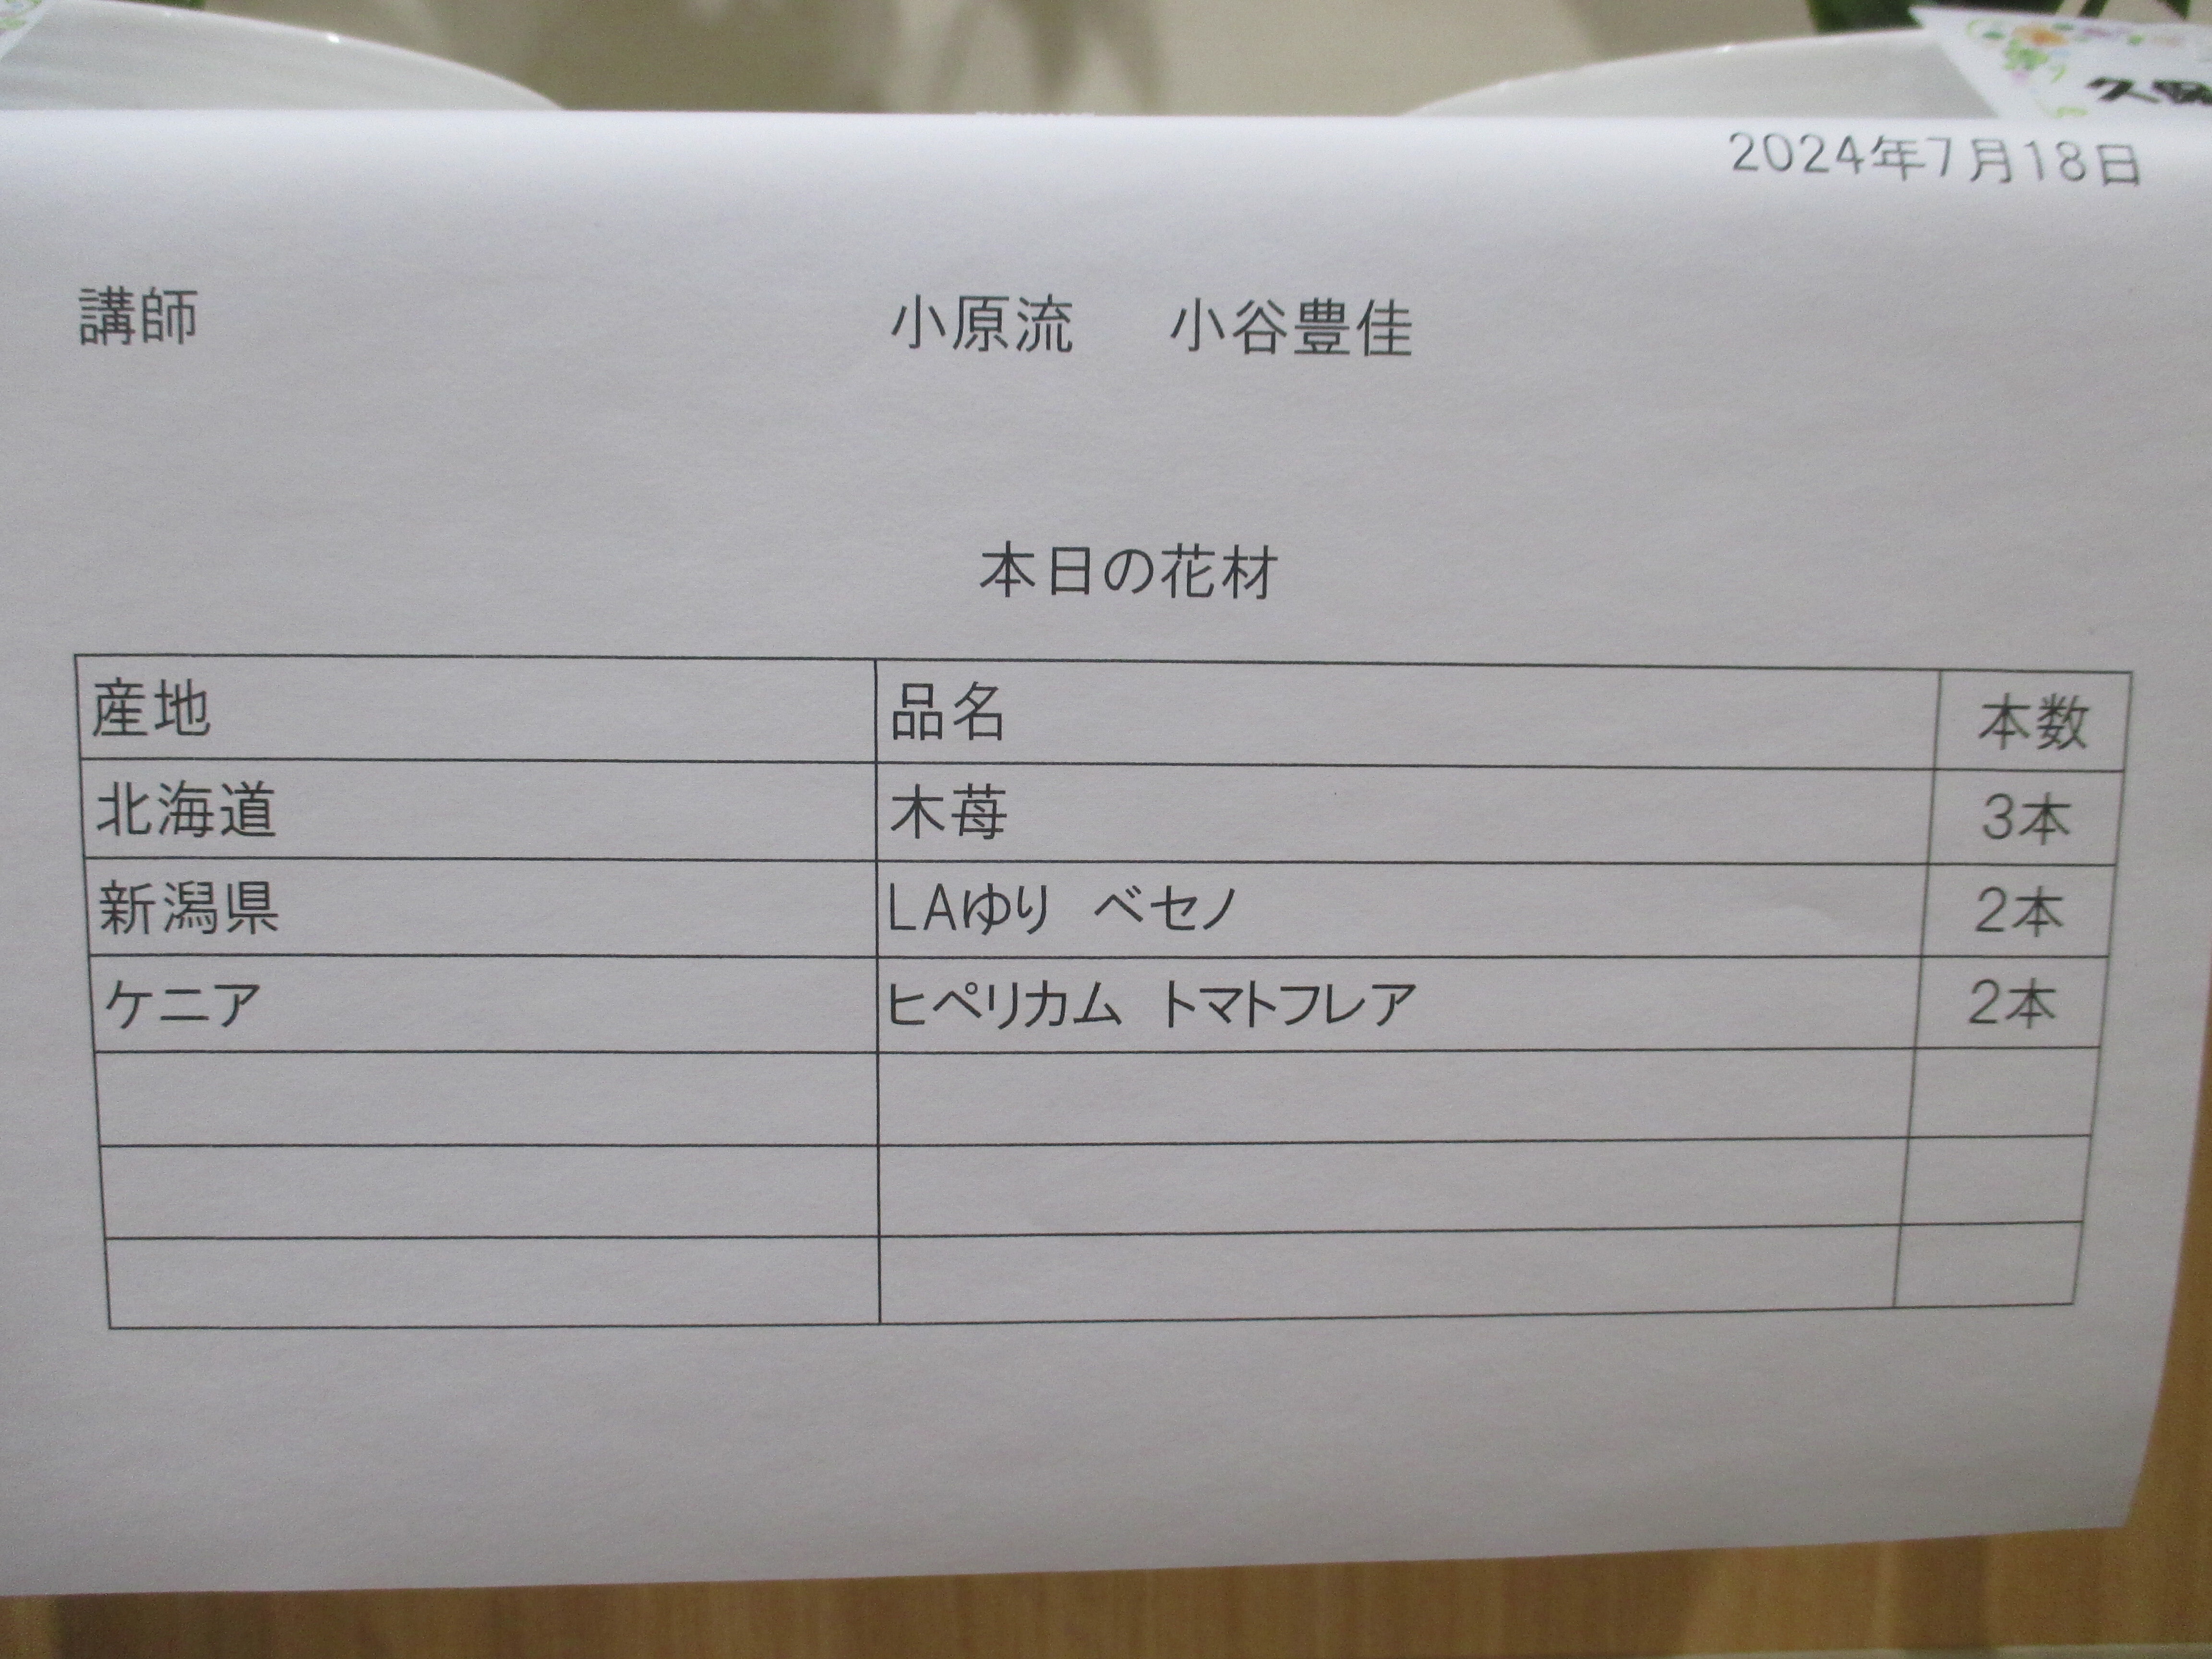 2024年7月18日
講師 小原流 小谷豊佳
本日の花材
産地 品名 本数
北海道 木苺 3本
新潟県 LAゆり ベセノ 2本
ケニア ヒペリカム トマトフレア 2本